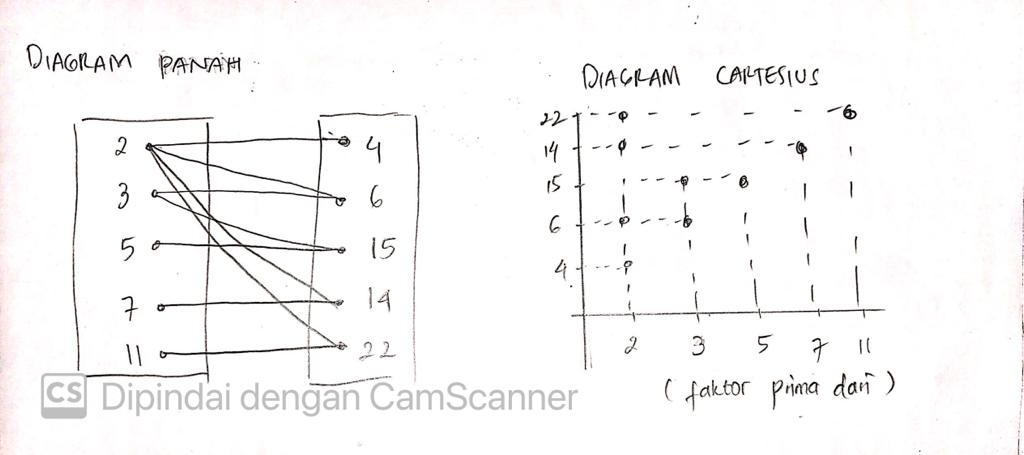 DIAGRAM PANAH
2
3
5
7
11
4
6
15
14
22
DIAGRAM CARTESIUS
22
14
15
6
4
2 3 5 7 11
(faktor prima dari)
CS Dipindai dengan CamScanner